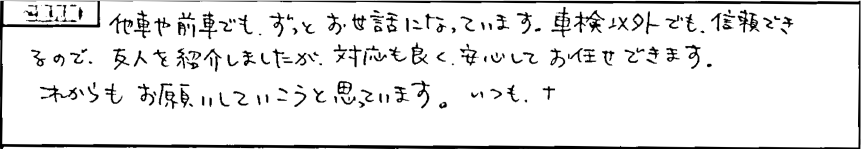 他車や前車でも、ずっとお世話になっています。車検以外でも、信頼でき
るので、友人を紹介しましたが、対応も良く、安心してお任せできます。
これからもお願いしていこうと思っています。いつも、